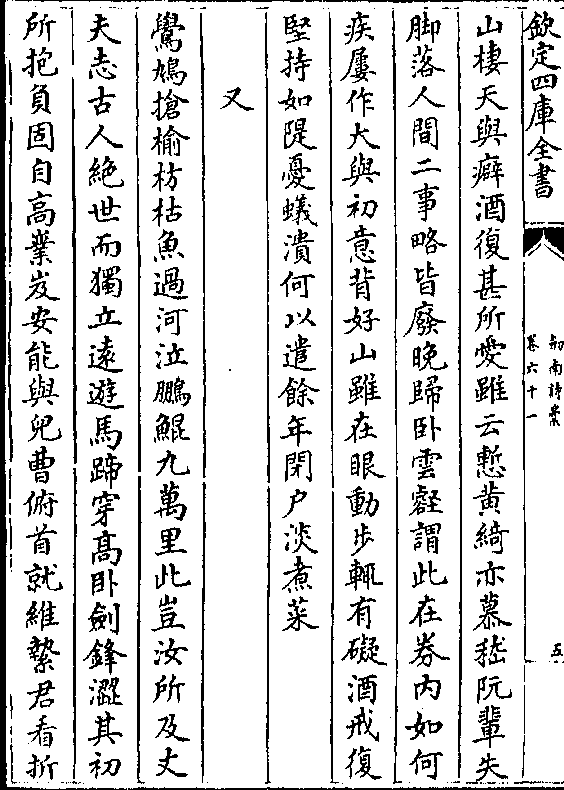 欽定四庫全書
劔南詩藁
卷六十一
五
山棲天與癖酒復甚所愛雖云慙黄綺亦慕嵇阮輩失
脚落人間二事略皆廢晚歸卧雲壑謂此在券内如何
疾屢作大與初意背好山雖在眼動步輒有礙酒戒復
堅持如隄憂蟻潰何以遣餘年閉户淡煮菜
又
鷽鳩搶榆枋枯魚過河泣鵬鯤九萬里此豈汝所及丈
夫志古人絶世而獨立遠遊馬蹄穿髙卧劍鋒澀其初
所抱負固自高岌岌安能與兒曹俯首就維縶君看折